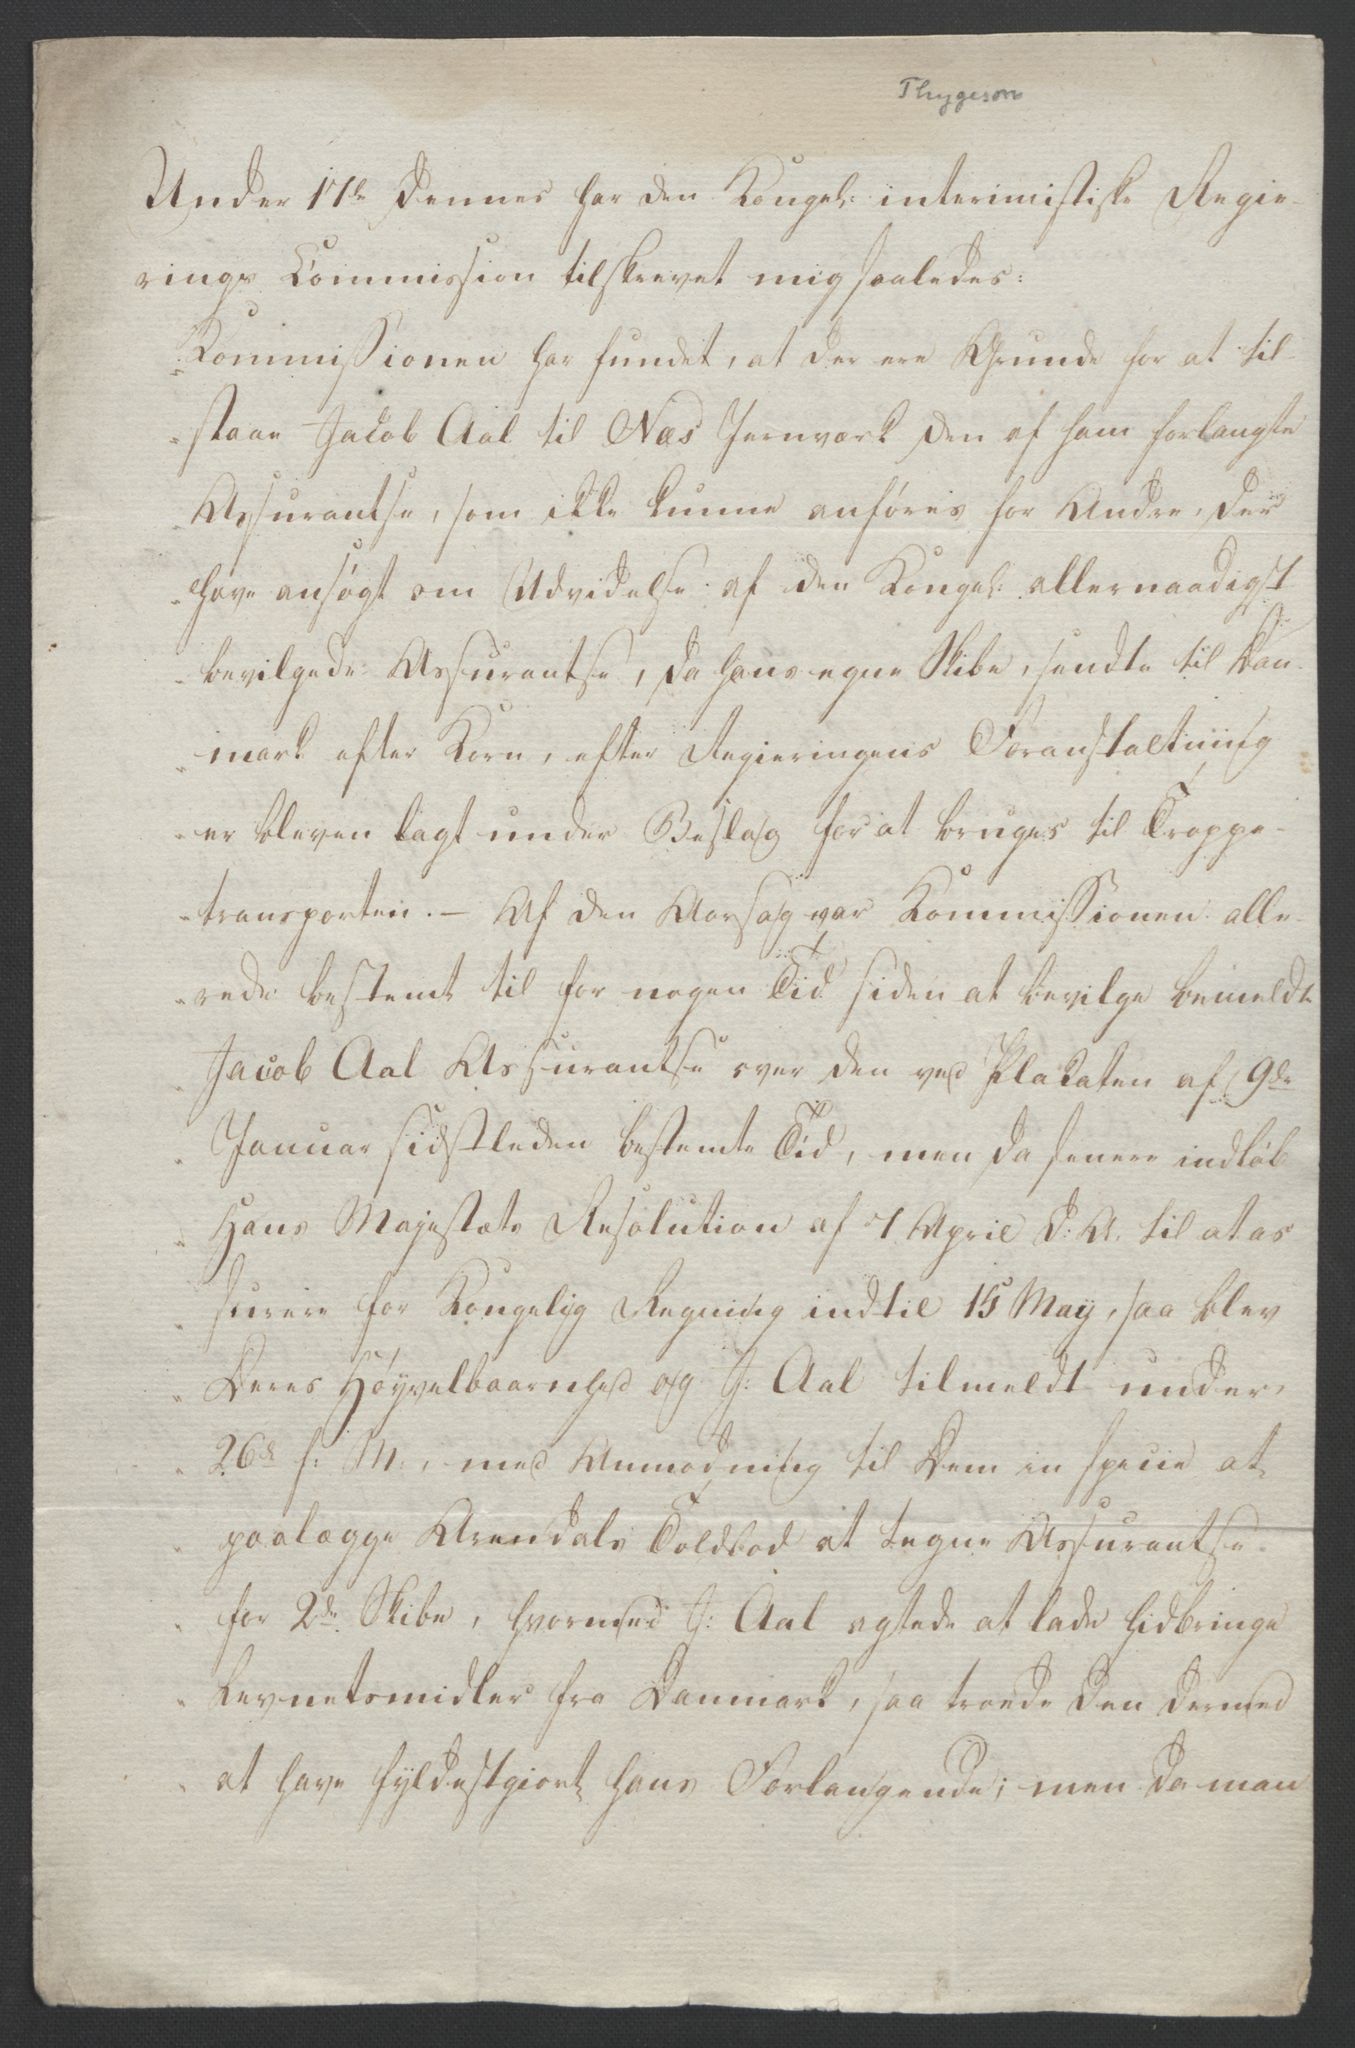 Thygeson
Under 17de dennes har den Kongel: interimistiske Regie-
rings Commission tilskrevet mig saaledes:
"Kommissionen har fundet, at der ere Grunde for at til-
"staae Jacob Aal til Næs Jernværk den af ham forlangte
"Assurantse, som ikke kunne anföres for Andre, der
"have ansögt om Udvidelse af den Kongel: allernaadigst
"bevilgede Assurantse, da hans egne Skibe, sendte til Dan-
"mark efter Korn, efter Regieringens Foranstaltning
"er bleven lagt under Beslag for at bruges til Troppe-
"transporten. – Af den Aarsag var Kommissionen alle-
"rede bestemt til for nogen Tid siden at bevilge bemeldte
"Jacob Aal Assurantse over den ved Plakaten af 9de
"Januar sidstleden bestemte Tid, men da senere indlöb
"Hans Majestæts Resolution af 7 April d: A. til at as
"surere for Kongelig Regning indtil 15 May, saa blev
"Deres Höyvelbaarnhed og J: Aal tilmeldt under
"26de f: M:, med Anmodning til Dem in specie at
"paalægge Arendals Toldbod at tegne Assurantse
"for 2de Skibe, hvormed J: Aal agtede at lade hidbringe
"Levnetsmidler fra Danmark, saa troede den dermed
"at have fyldestgiort hans Forlangende; men da man